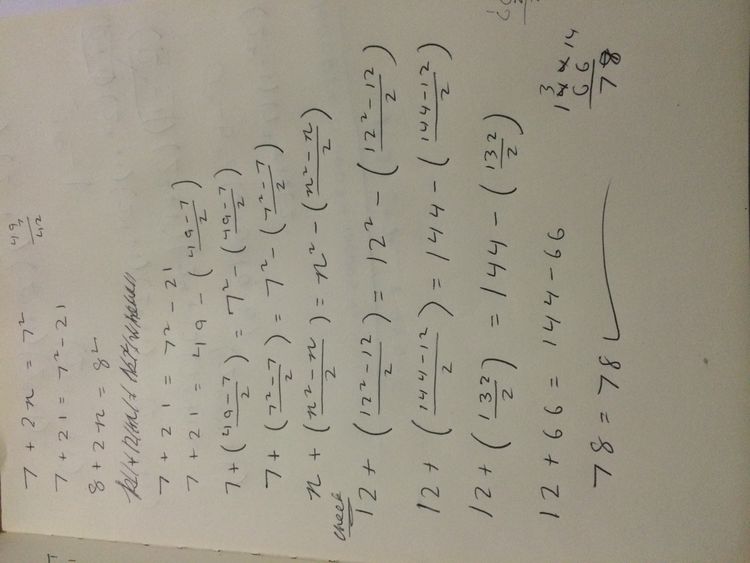 7 + 2n = 7²
49
7
42
7 + 21 = 7² - 21
8 + 2n = 8²
7 + 21 = 7² - 21
7 + 21 = 49 - (49-7/2)
7 + (49-7/2) = 7² - (49-7/2)
7 + (7²-7/2) = 7² - (7²-7/2)
n + (n²-n/2) = n² - (n²-n/2)
check
12 + (12²-12/2) = 12² - (12²-12/2)
12 + (144-12/2) = 144 - (144-12/2)
12 + (132/2) = 144 - (132/2)
12 + 66 = 144 - 66
78 = 78 ✓
3 14
144
66
78